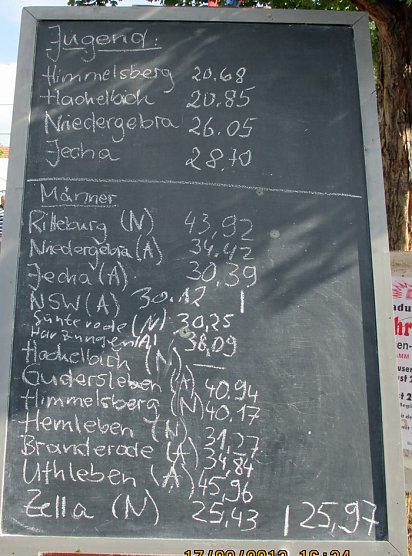 Jugend:
Himmelsberg 20,68
Hachelbich 20.85
Niedergebra 26.05
Jecha 28.70
Männer
Ritteburg (N) 43,92
Niedergebra (A) 34.42
Jecha (A) 30.39
NSW (A) 30.12
Günterode (N) 30,25
Harzungen (A) 38,09
Hachelbich (N) —
Gudersleben (A) 40.94
Himmelsberg (N) 40.17
Hemleben (N) 31,27
Branderode (A) 34,84
Uthleben (A) 45,96
Zella (N) 25,43 | 25,97